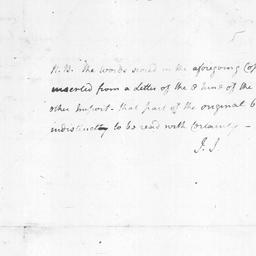 N. B. The words scored in the aforegoing Cop
inserted from a Letter of the 8 June of the
other Import - that part of the original b
indistinctly to be read with Certainty -
J. J